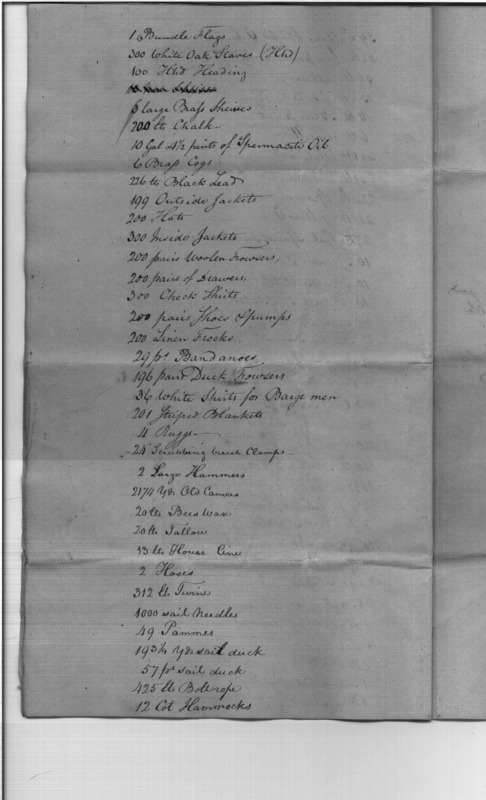 1 Bundle Flags
300 White Oak Staves (Hhd)
100 Hhd Heading
6 large Brass Sheives
200 lb Chalk
10 Gal 4½ pints of Spermaceti Oil
6 Brass Cogs
226 lb Black Lead
199 Outside Jackets
200 Hats
300 Inside Jackets
200 pairs Woolen Trowsers
200 pairs of Drawers
300 Check Shirts
200 pairs Shoes & pumps
200 Linen Frocks
29 ps Bandanoes
196 pairs Duck Trowsers
36 White Shirts for Barge men
201 Striped Blankets
4 Ruggs
24 Scrubbing brush Clamps
2 Large Hammers
2174 Yds Old Canvas
20 lb Bees Wax
20 lb Tallow
13 lb House line
2 Hoses
312 lb Twine
1000 sail needles
49 Pammes
193¼ Yds sail duck
57 ps sail duck
425 lb Bolt rope
12 Cot Hammocks